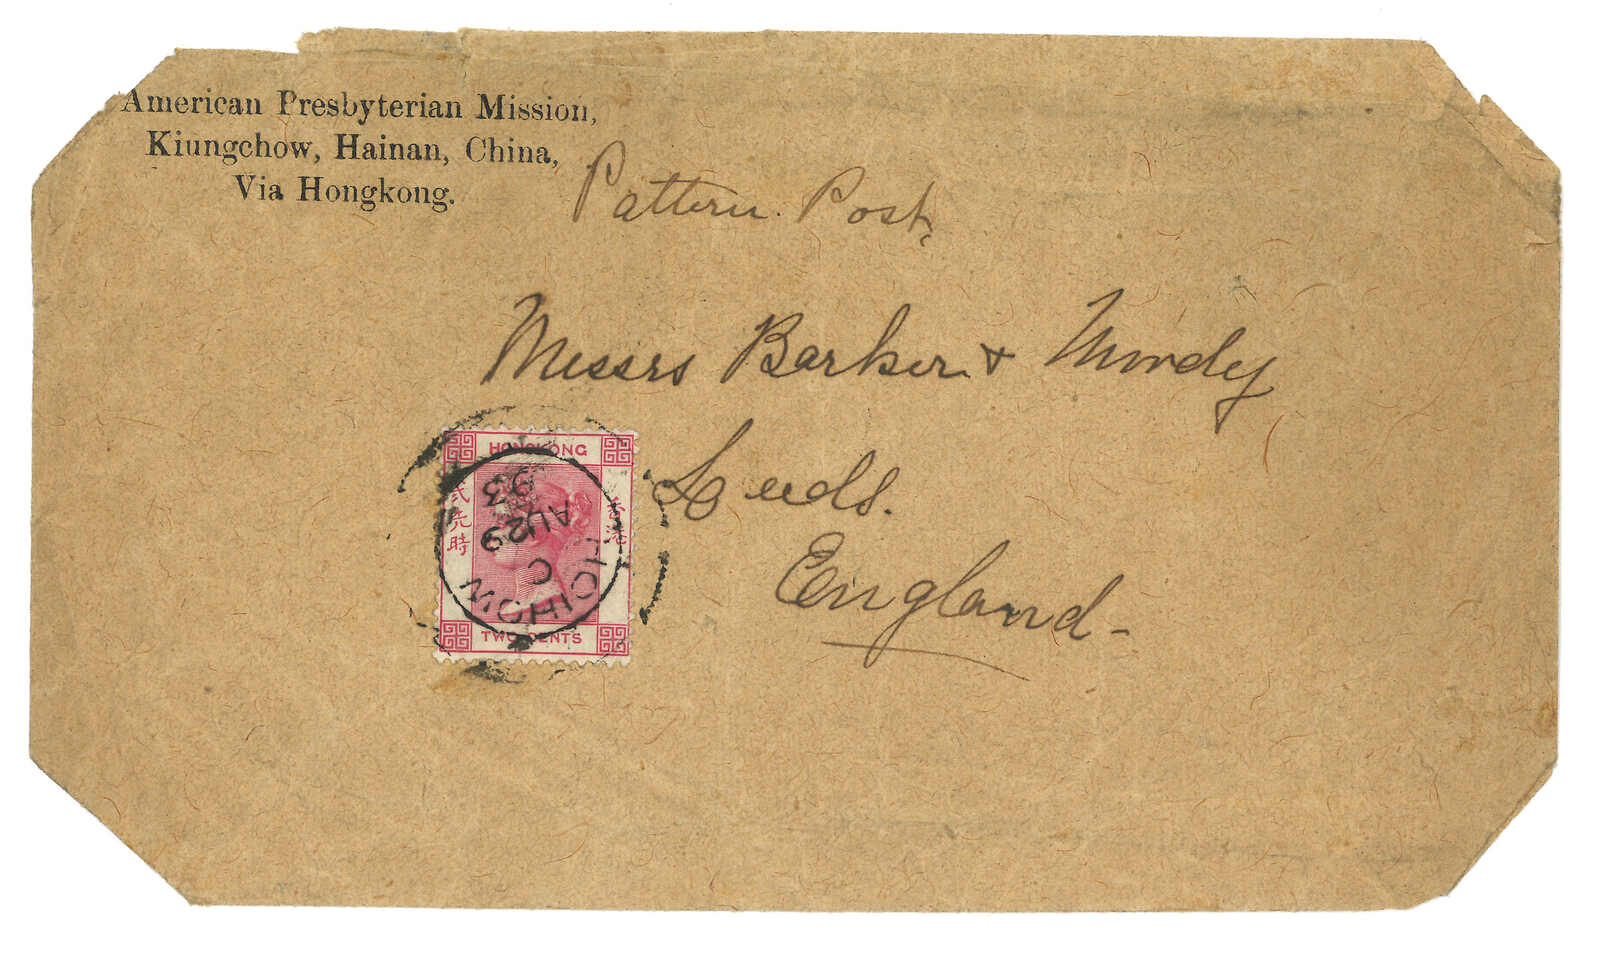 American Presbyterian Mission,
Kiungchow, Hainan, China,
Via Hongkong.
Pattern Post,
Messrs Barker &
Leeds.
England-
HONGKONG
貳先時
香港
TWO CENTS
HOIHOW
C
AU 29
93